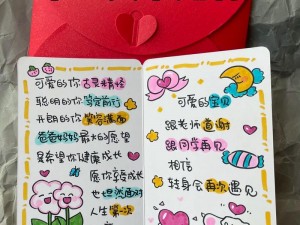 可爱的你古灵精怪
聪明的你笃定前行
开朗的你笑容满面
爸爸妈妈最大的愿望
是希望你健康成长
愿你享受成长
也坦然面对
人生第一次
可爱的宝贝
跟老师道谢
跟同学再见
相信
转身会再次遇见